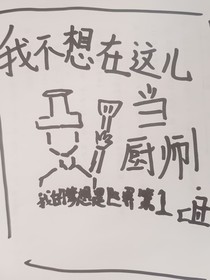 我不想在这儿
当
厨师
我的梦想是世界第1